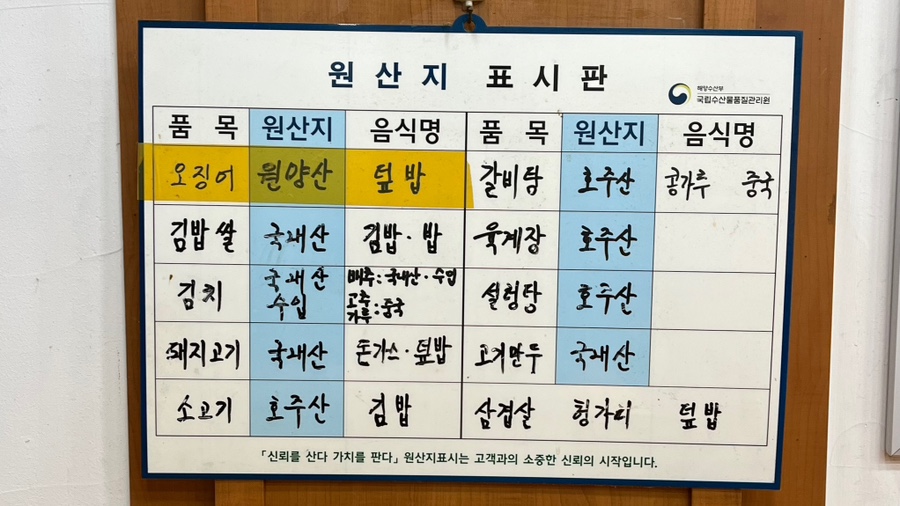 원산지 표시판
해양수산부
국립수산물품질관리원
품 목 원산지 음식명 품 목 원산지 음식명
오징어 원양산 덮밥 갈비탕 호주산 콩가루 중국
김밥쌀 국내산 김밥·밥 육계장 호주산
김치 국내산 수입 배추:국내산·수입 고추가루:중국 설렁탕 호주산
돼지고기 국내산 돈가스·덮밥 고기만두 국내산
소고기 호주산 김밥 삼겹살 헝가리 덮밥
「신뢰를 산다 가치를 판다」 원산지표시는 고객과의 소중한 신뢰의 시작입니다.